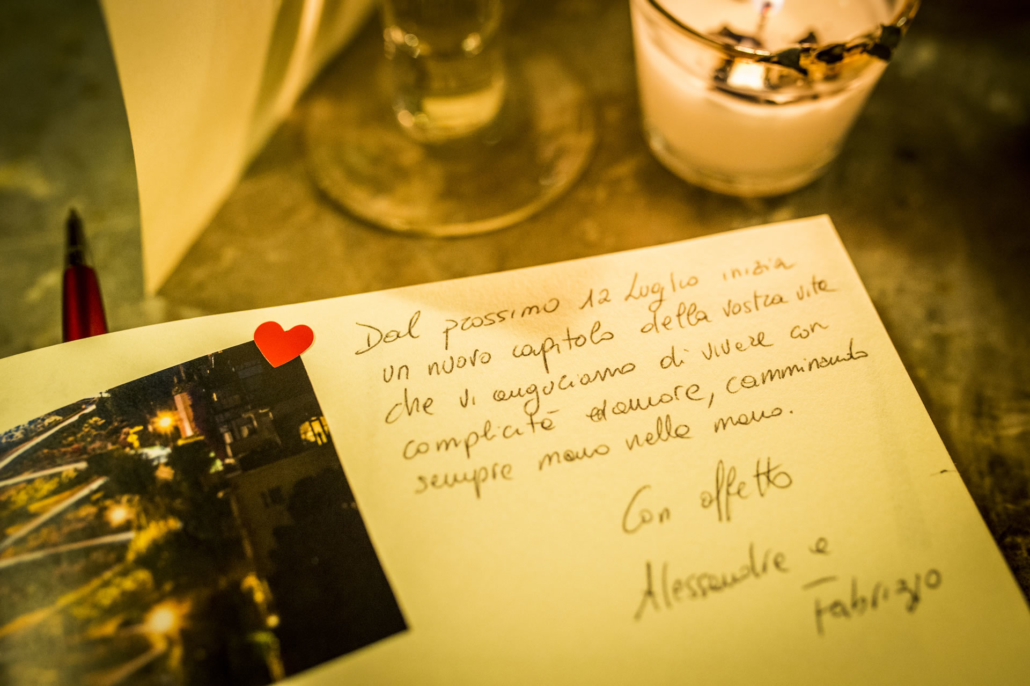 Dal prossimo 12 Luglio inizia
un nuovo capitolo della vostra vita
che vi auguriamo di vivere con
complicità ed amore, camminando
sempre mano nella mano.
Con affetto
Alessandra e
Fabrizio